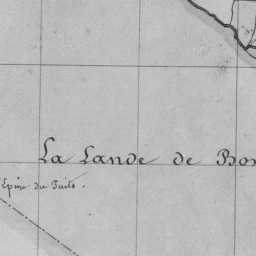 La Lande de Bon
Epine du Puits.